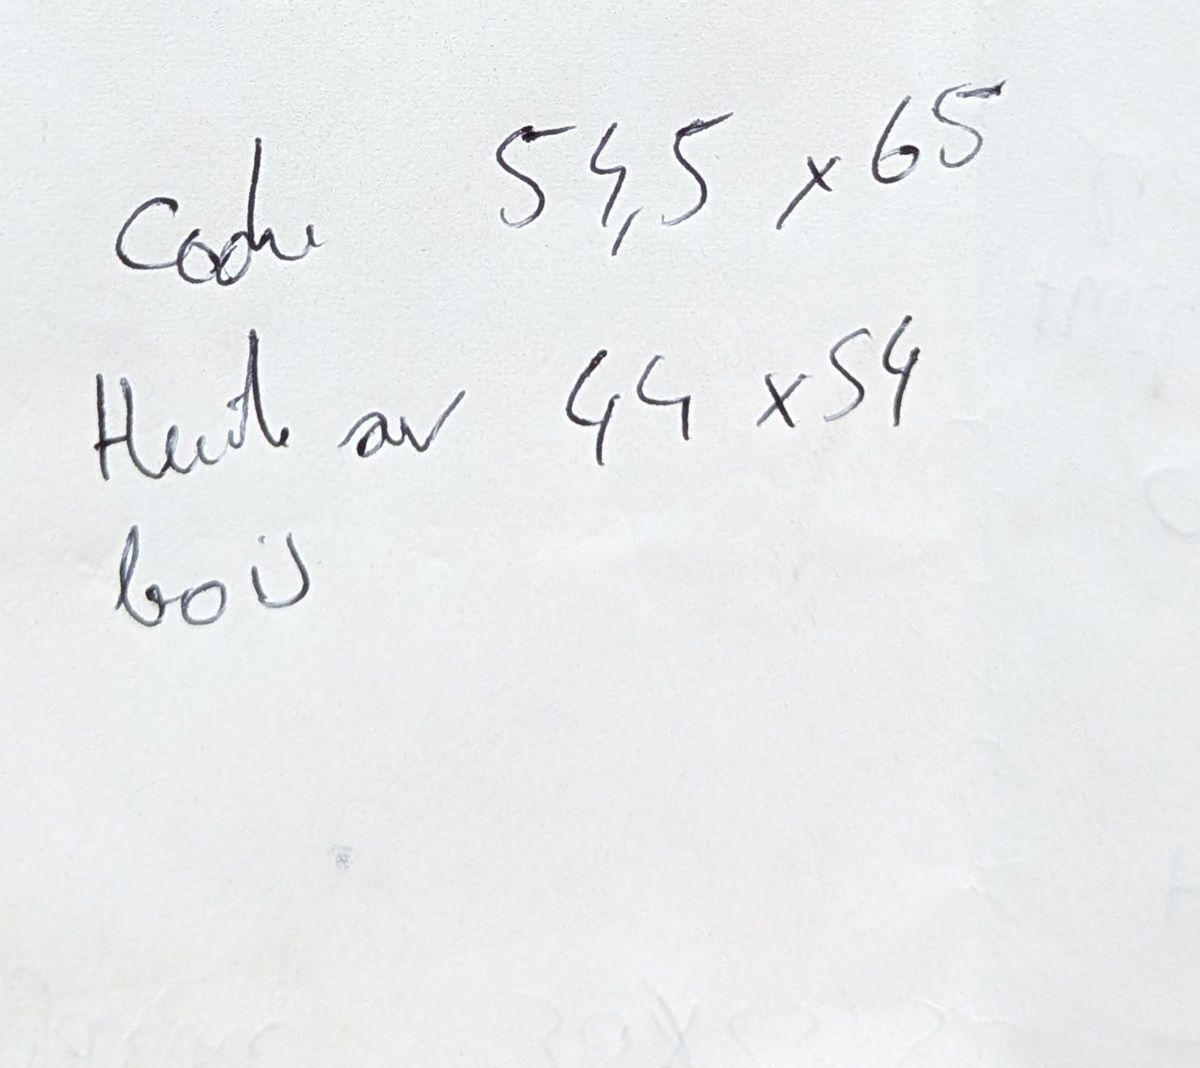 Cadre 54,5 x 65
Huile sur 44 x 54
bois